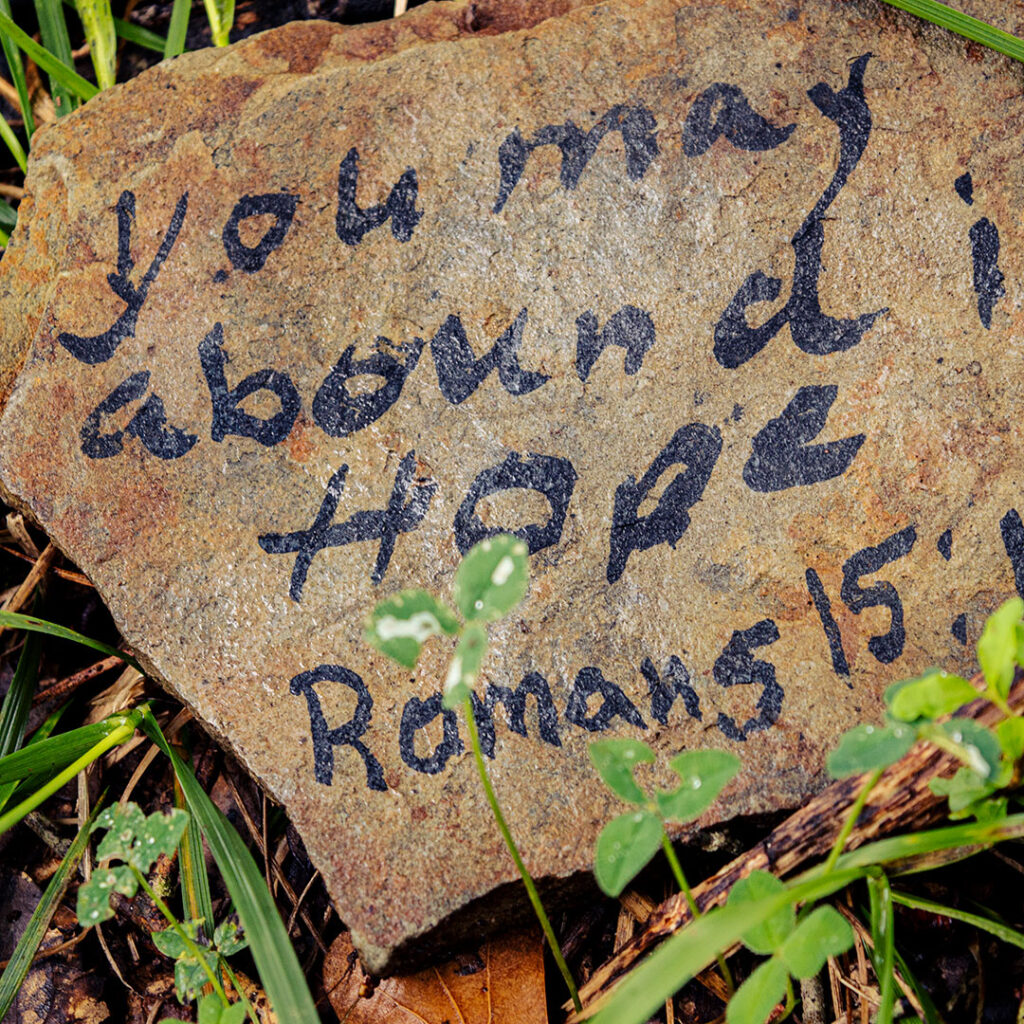 you may
abound i
Hope
Romans 15:1